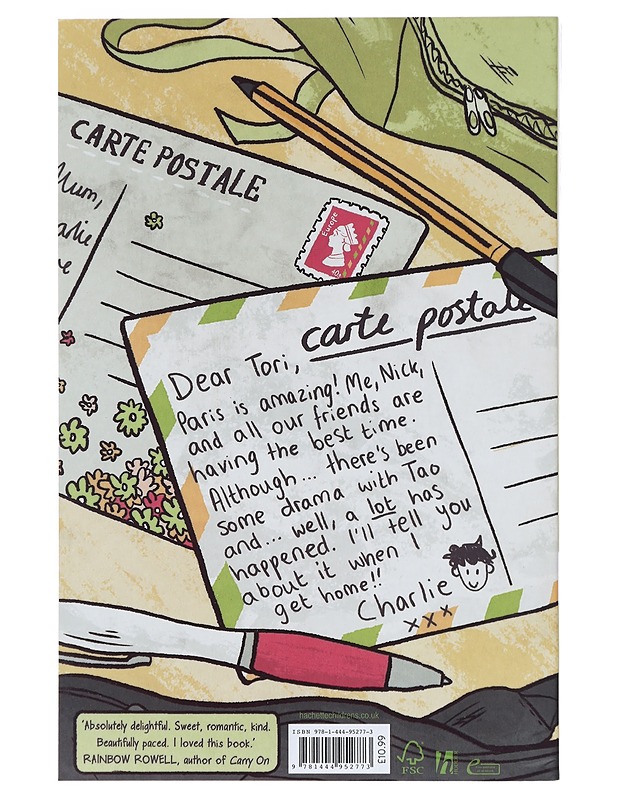 CARTE POSTALE
Mum,
Europe
carte postale
Dear Tori,
Paris is amazing! Me, Nick,
and all our friends are
having the best time.
Although... there's been
some drama with Tao
and... well, a lot has
happened. I'll tell you
about it when I
get home!!
Charlie
xxx
hachettechildrens.co.uk
ISBN 978-1-444-95277-3
9 781444 952773
£10.99
FSC
'Absolutely delightful. Sweet, romantic, kind.
Beautifully paced. I loved this book.'
RAINBOW ROWELL, author of Carry On